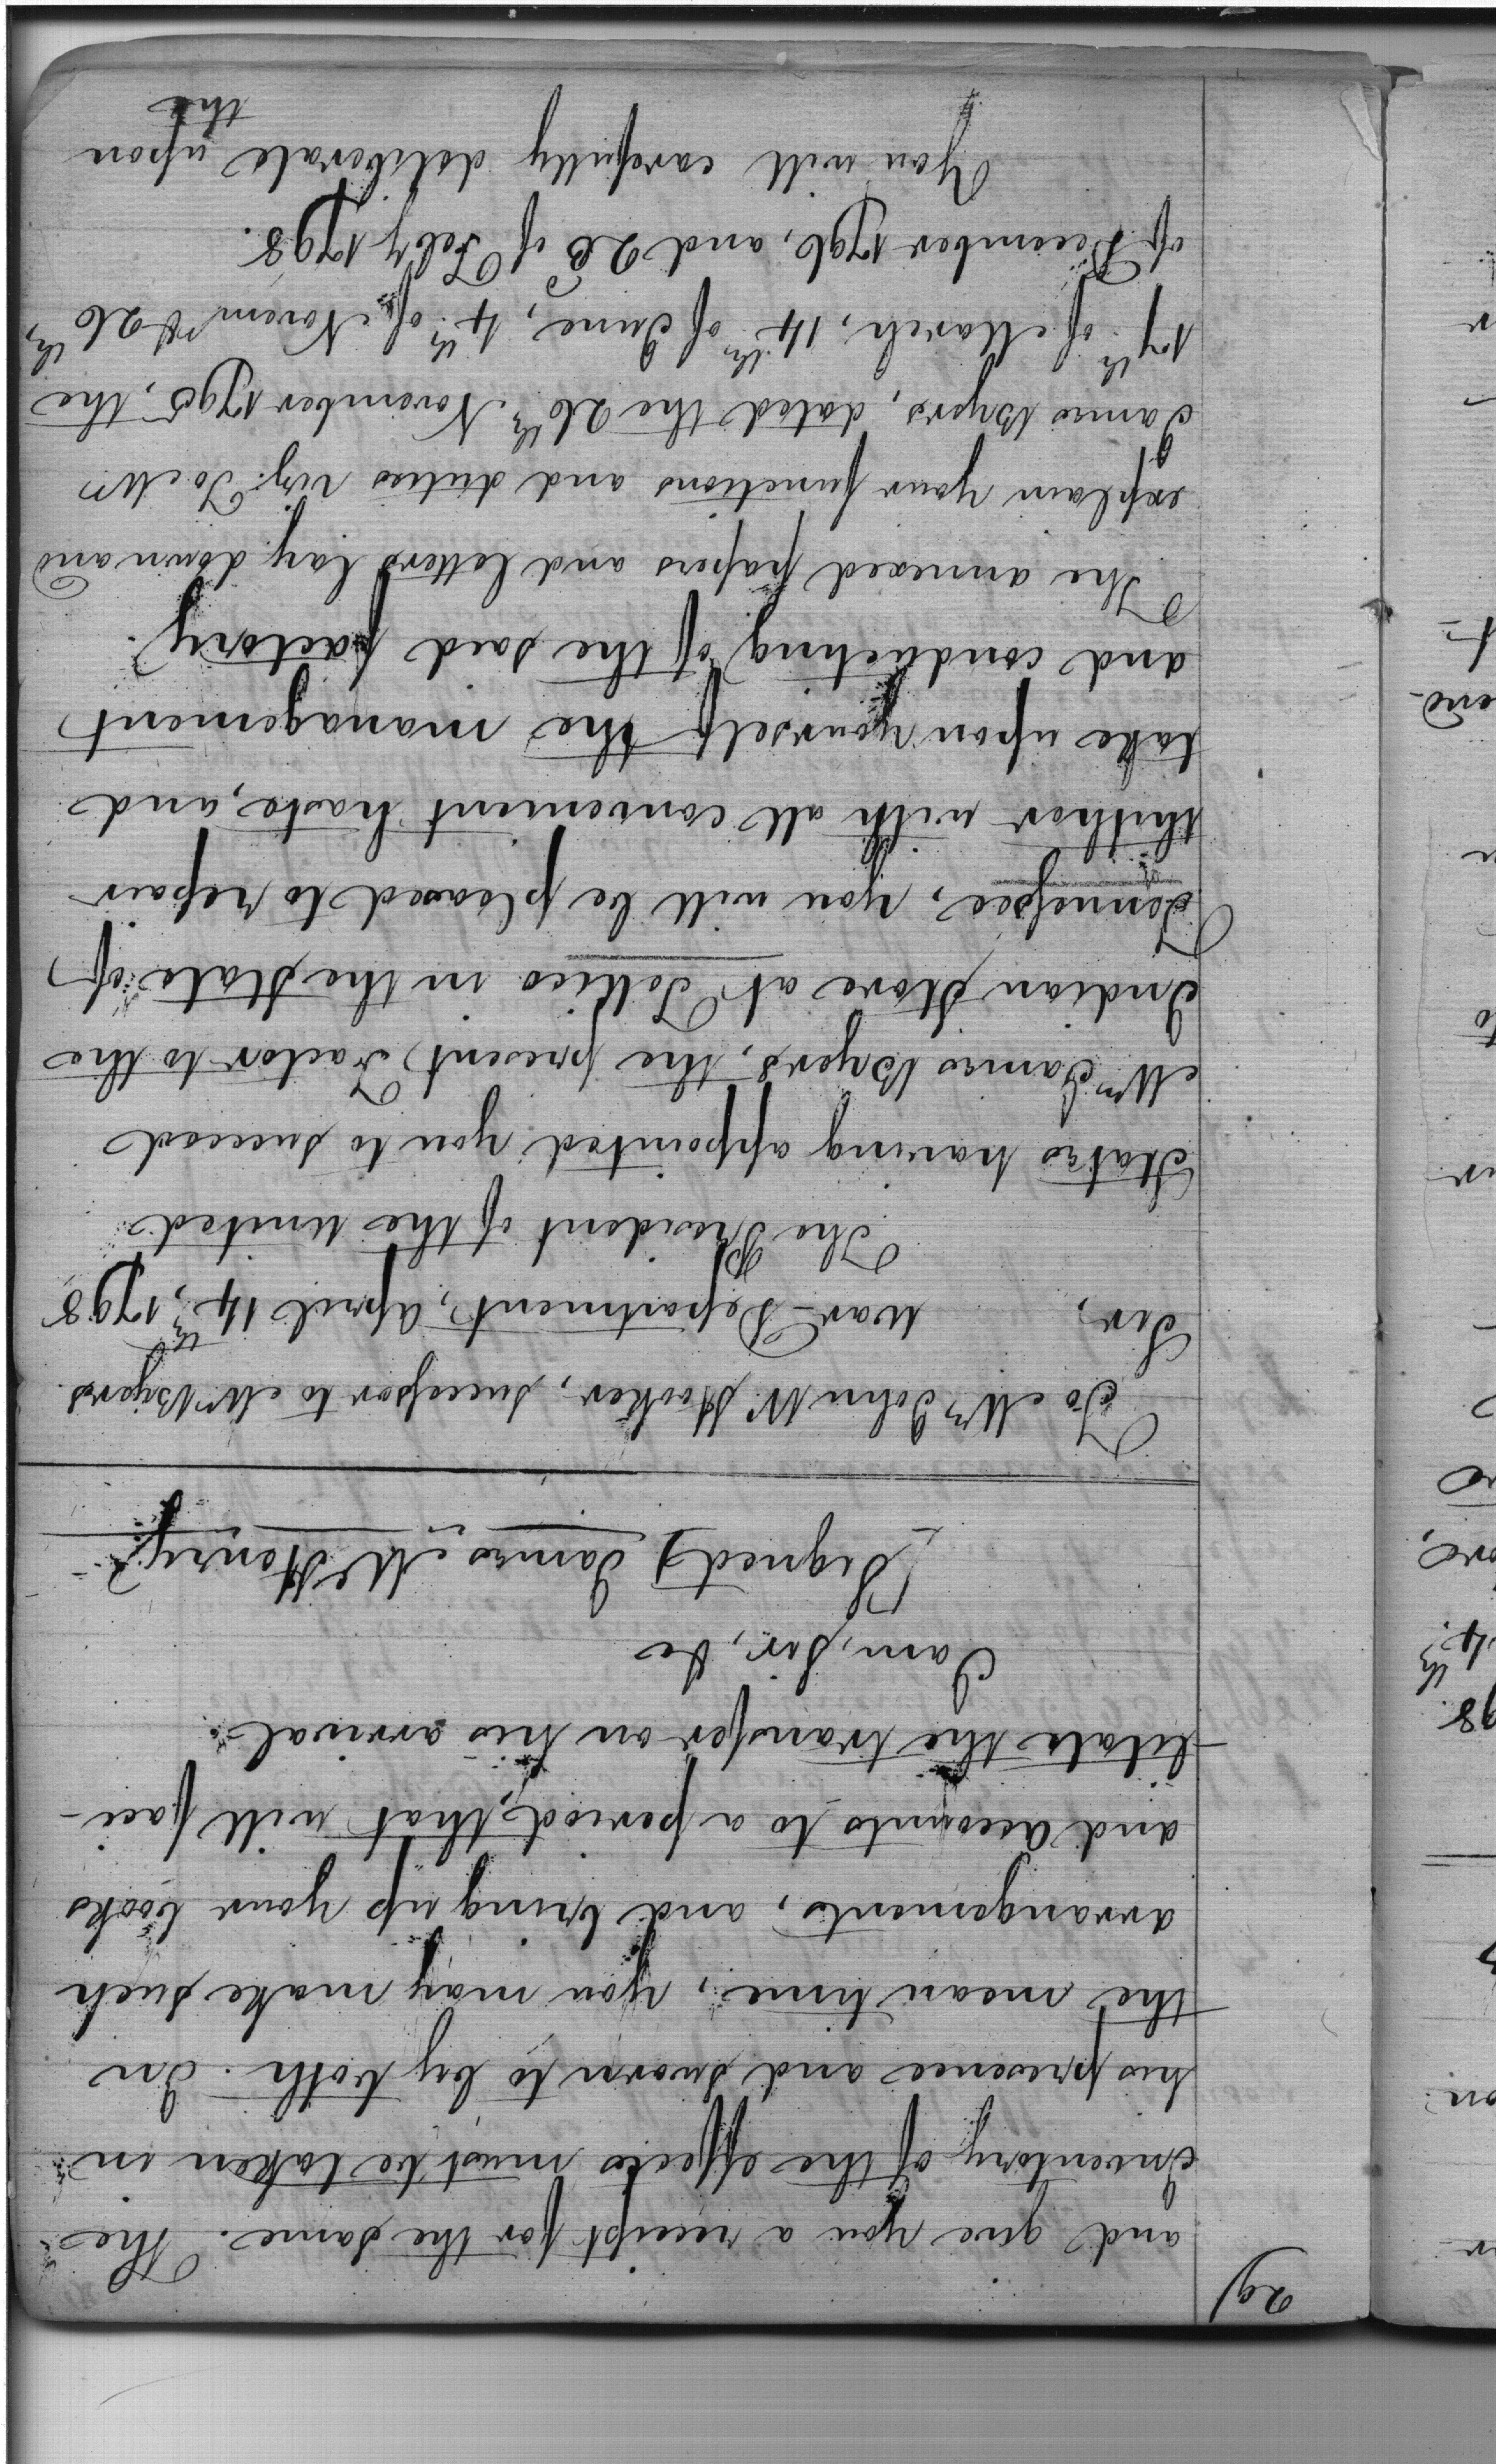 29)
and give you a receipt for the same. The
Inventory of the effects must be taken in
his presence and sworn to by both. In
the mean time, you may make such
arrangements, and bring up your books
and accounts to a period, that will faci-
-litate the transfer on his arrival.
I am, Sir, &c
(Signed) James McHenry.
To Mr John W. Hooker, successor to Mr Byers.
Sir,
War-Department, April 14th, 1798
The President of the United
States having appointed you to succeed
Mr James Byers, the present Factor to the
Indian Store at Tellico in the State of
Tennessee, you will be pleased to repair
thither with all convenient haste, and
take upon yourself the management
and conducting of the said factory.
The annexed papers and letters lay down and
explain your functions and duties viz: To Mr
James Byers, dated the 26th November 1795, the
17th of March, 14th of June, 4th of Novemr & 26th
of December 1796, and 28 of Feby 1798.
You will carefully deliberate upon
the